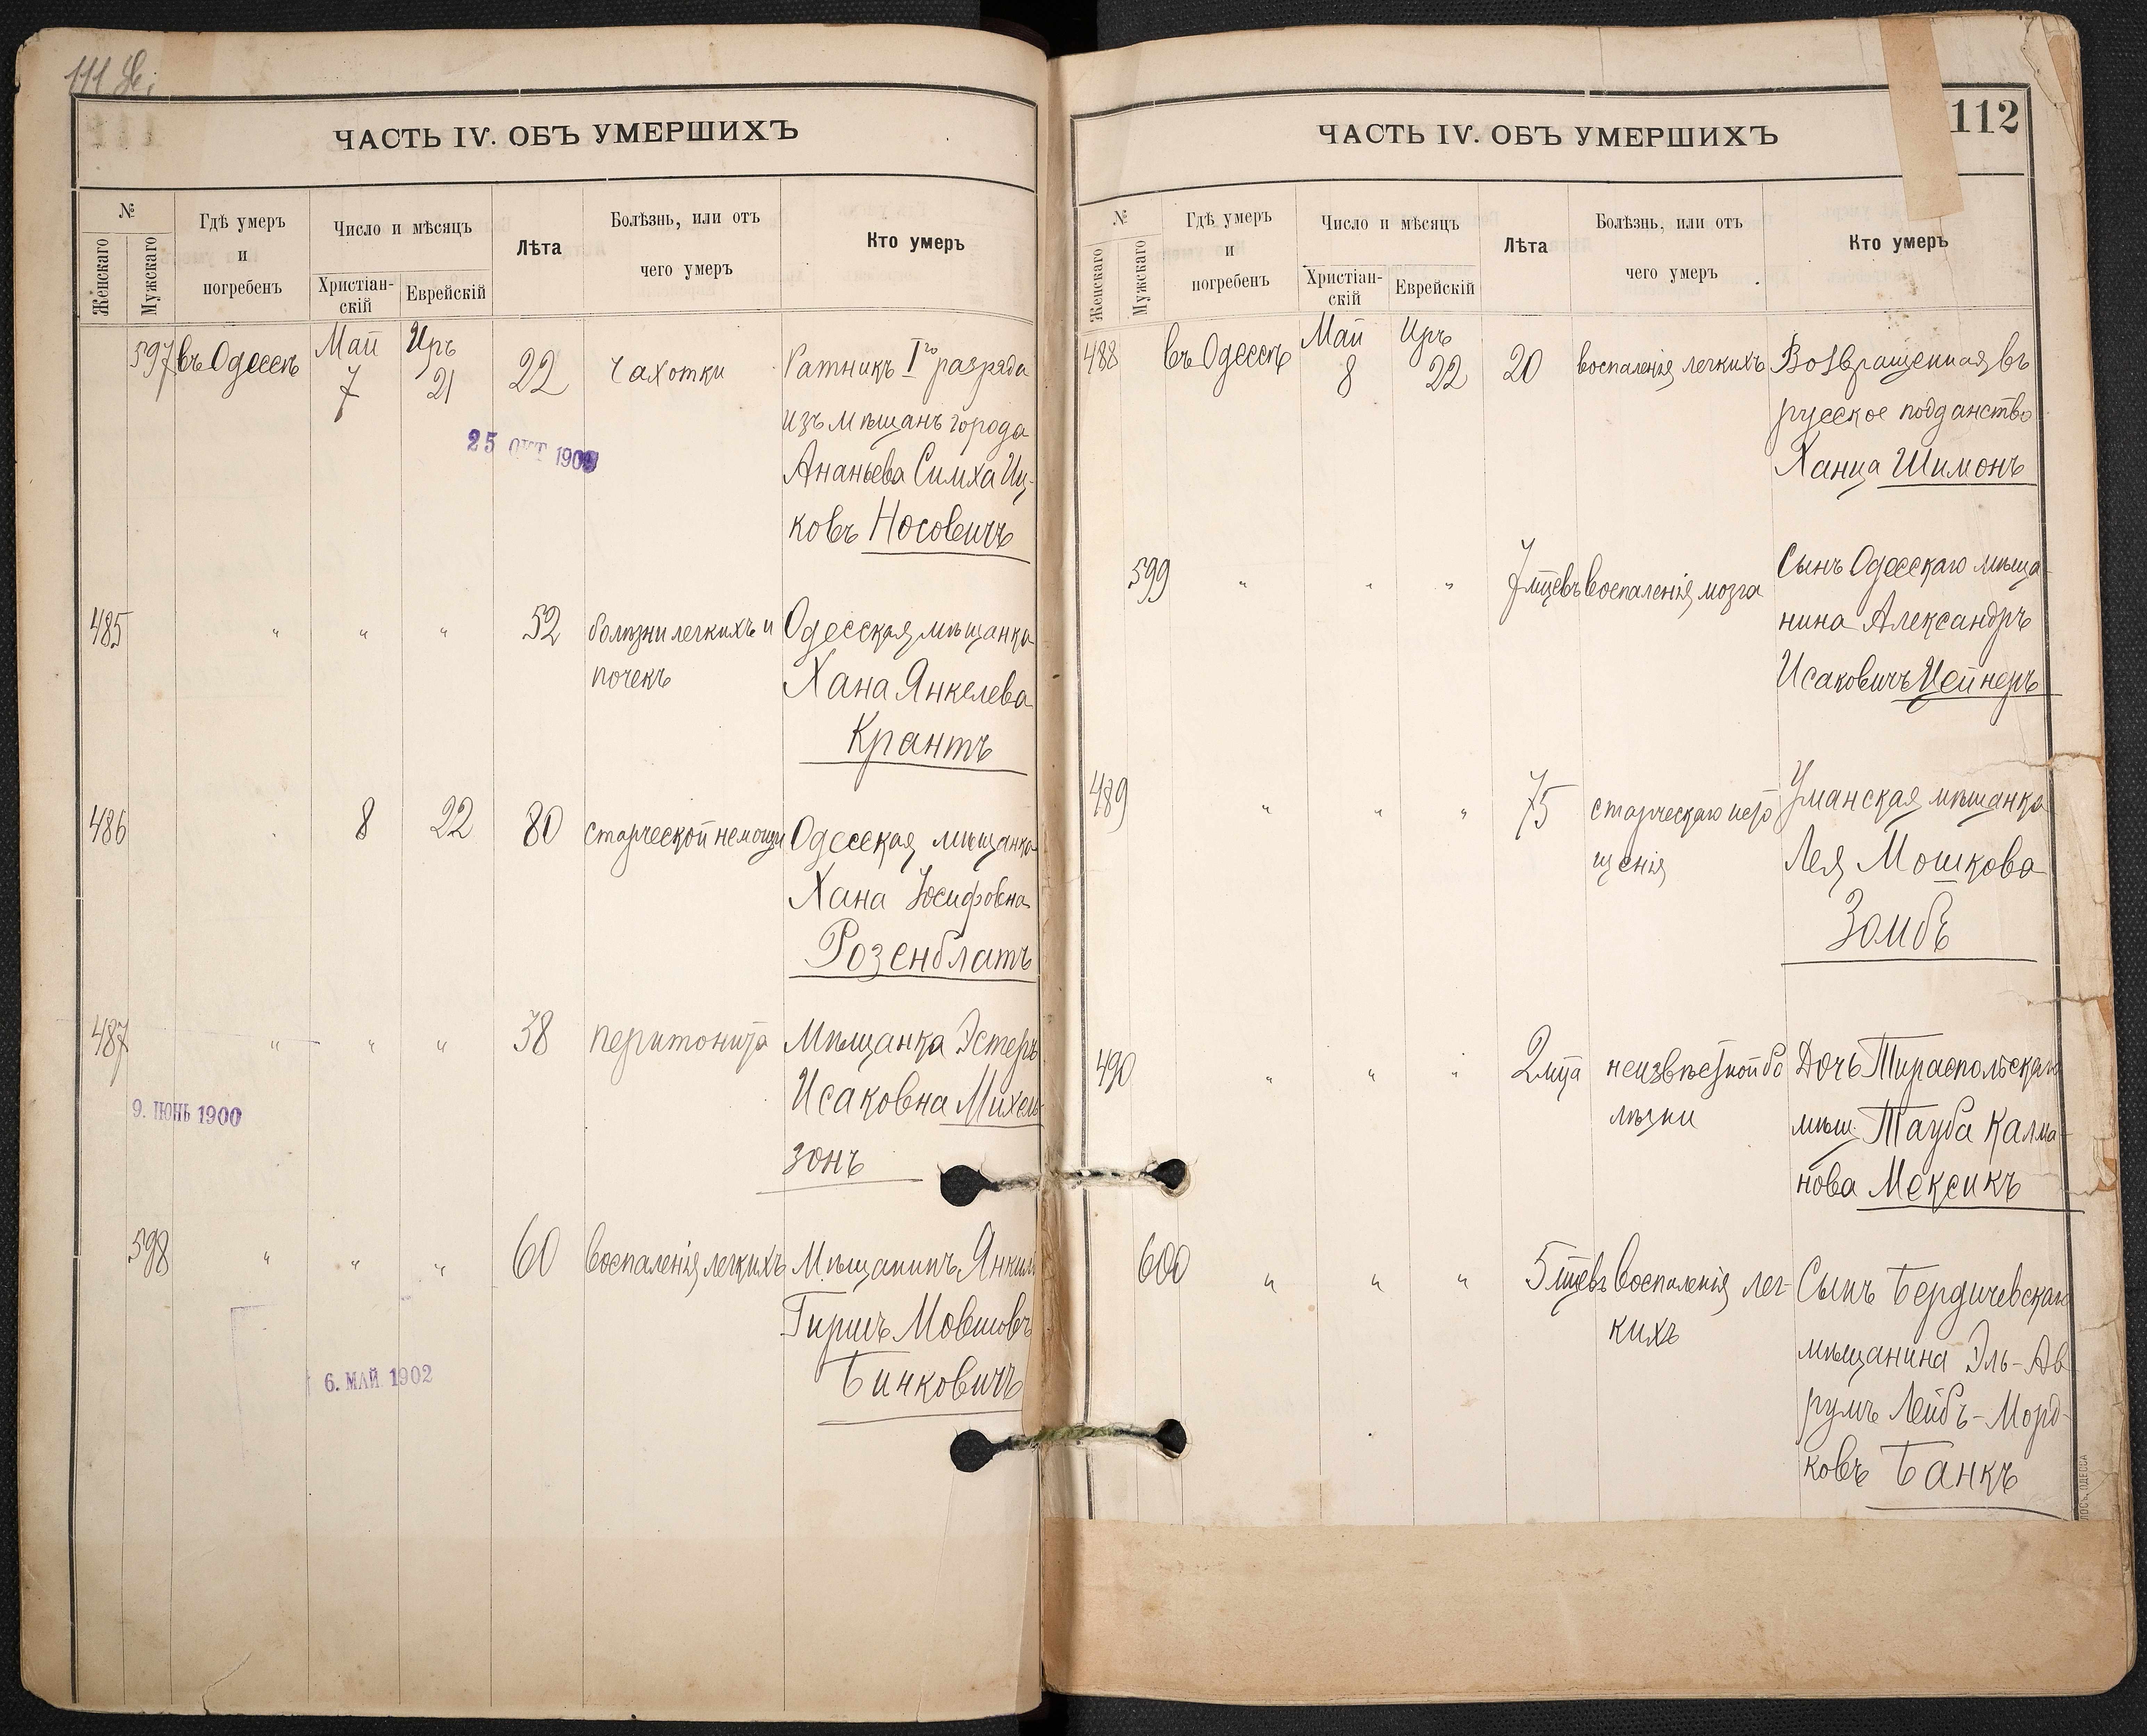 ЧАСТЬ IV. ОБЪ УМЕРШИХЪ
№
Женскаго
Мужскаго
Гдѣ умеръ
и
погребенъ
Число и мѣсяцъ
Христіан-
скій
Еврейскій
Лѣта
Болѣзнь, или отъ
чего умеръ
Кто умеръ
597 въ Одессѣ Май Иръ 22 Чахотки Ратникъ Iго разряда
7 21
изъ мѣщанъ города
25 ОКТ 190
Ананьева Симха Иц-
ковъ Носовичъ
485 " " " 52 болѣзни легкихъ и Одесская мѣщанка
почекъ Хана Янкелева
Крантъ
486 8 22 80 старческой немощи Одесская мѣщанка
Хана Іосифовна
Розенблатъ
487 " " " 38 перитонита Мѣщанка Эстеръ
Исаковна Михель-
9. ІЮНЬ 1900
зонъ
598 " " " 60 воспаленія легкихъ Мѣщанинъ Янкель
Гиршъ Мовшовъ
6. МАЙ 1902
Бинковичъ
112
ЧАСТЬ IV. ОБЪ УМЕРШИХЪ
№
Женскаго
Мужскаго
Гдѣ умеръ
и
погребенъ
Число и мѣсяцъ
Христіан-
скій
Еврейскій
Лѣта
Болѣзнь, или отъ
чего умеръ
Кто умеръ
488 въ Одессѣ Май Иръ 20 воспаленія легкихъ Возвращенная въ
8 22
русское подданство
Ханца Шимонъ
599 " " " 7 мцевъ воспаленія мозга Сынъ Одесскаго мѣща-
нина Александръ
Исаковичъ Цейнеръ
489 " " " 75 старческаго исто Уманская мѣщанка
щенія Лея Мошкова
Зомбъ
490 " " " 2 мца неизвѣстной бо Дочь Тираспольскаго
лѣзни мѣщ. Тауба Калма-
нова Мексикъ
600 " " " 5 мцевъ воспаленія лег- Сынъ Бердичевскаго
кихъ мѣщанина Эль-Ав
румъ Лейбъ-Морд-
ковъ Банкъ